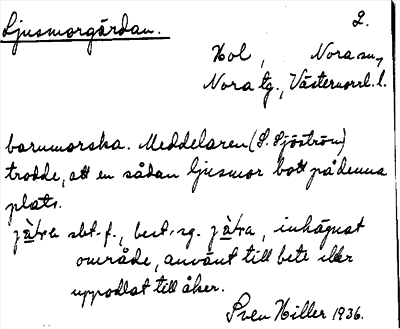 Ljusmorgärdan. 2.
Hol, Nora sn,
Nora tg., Västernorrl. l.
barnmorska. Meddelaren (S. Sjöström)
trodde, att en sådan ljusmor bott på denna
plats.
sbt. f., best. sg. inhägnat
område, använt till bete eller
uppodlat till åker.
Sven Hiller 1936.